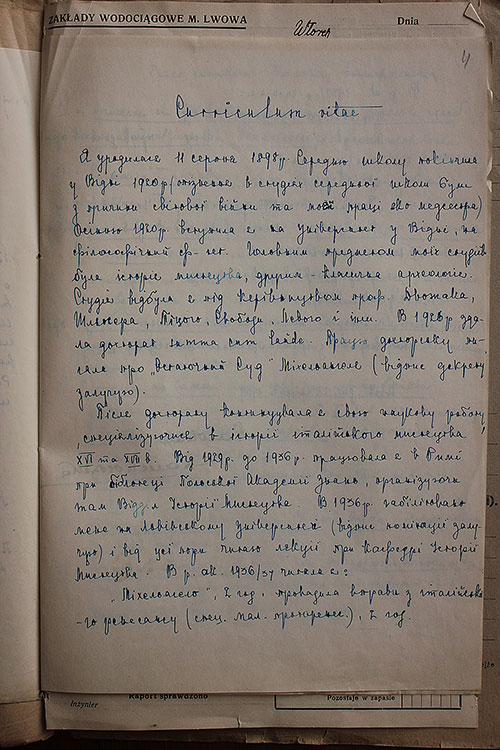 ZAKŁADY WODOCIĄGOWE M. LWOWA
Dnia
Wtorek
4
Curriculum vitae
Я уродилася 11 серпня 1898 р. Середню школу покінчила
у Відні 1920 р (опізнення в студіях середньої школи були
з причини світової війни та моєї праці яко медсестра)
1920 р. вступила я на Університет у Відні, на
філософічний ф-тет. Головним предметом моїх студій
була історія мистецтва, другим - класична археологія.
Студії відбула я під керівництвом проф. Дворжака,
Шльосера, Свободи, і інш. В 1926 р зда-
ла докторат summa cum laude. Працю докторську пи-
сала про „Остаточний Суд" Міхельанджела (відпис декрету
залучую).
Після докторату континуувала я свою наукову роботу,
спеціялізуючися в історії італійського мистецтва
XVI та XVII в. Від 1929 р. до 1936 р. працювала я в Римі
при бібліотеці Польської Академії Знань, організуючи
там Відділ Історії Мистецтва. В 1936 р. габілітовано
мене на Львівському Університеті (відпис номінації залу-
чую) і від цієї пори читаю лекції при Кафедрі Історії
Мистецтва. В р. ак. 1936/37 читала я:
„Міхельанджело", 2 год, провадила вправи з італійсько-
-го ренесансу (спец. мал. проторенес.), 2 год.
Raport sprawdzono
Inżynier
Pozostaje w zapasie